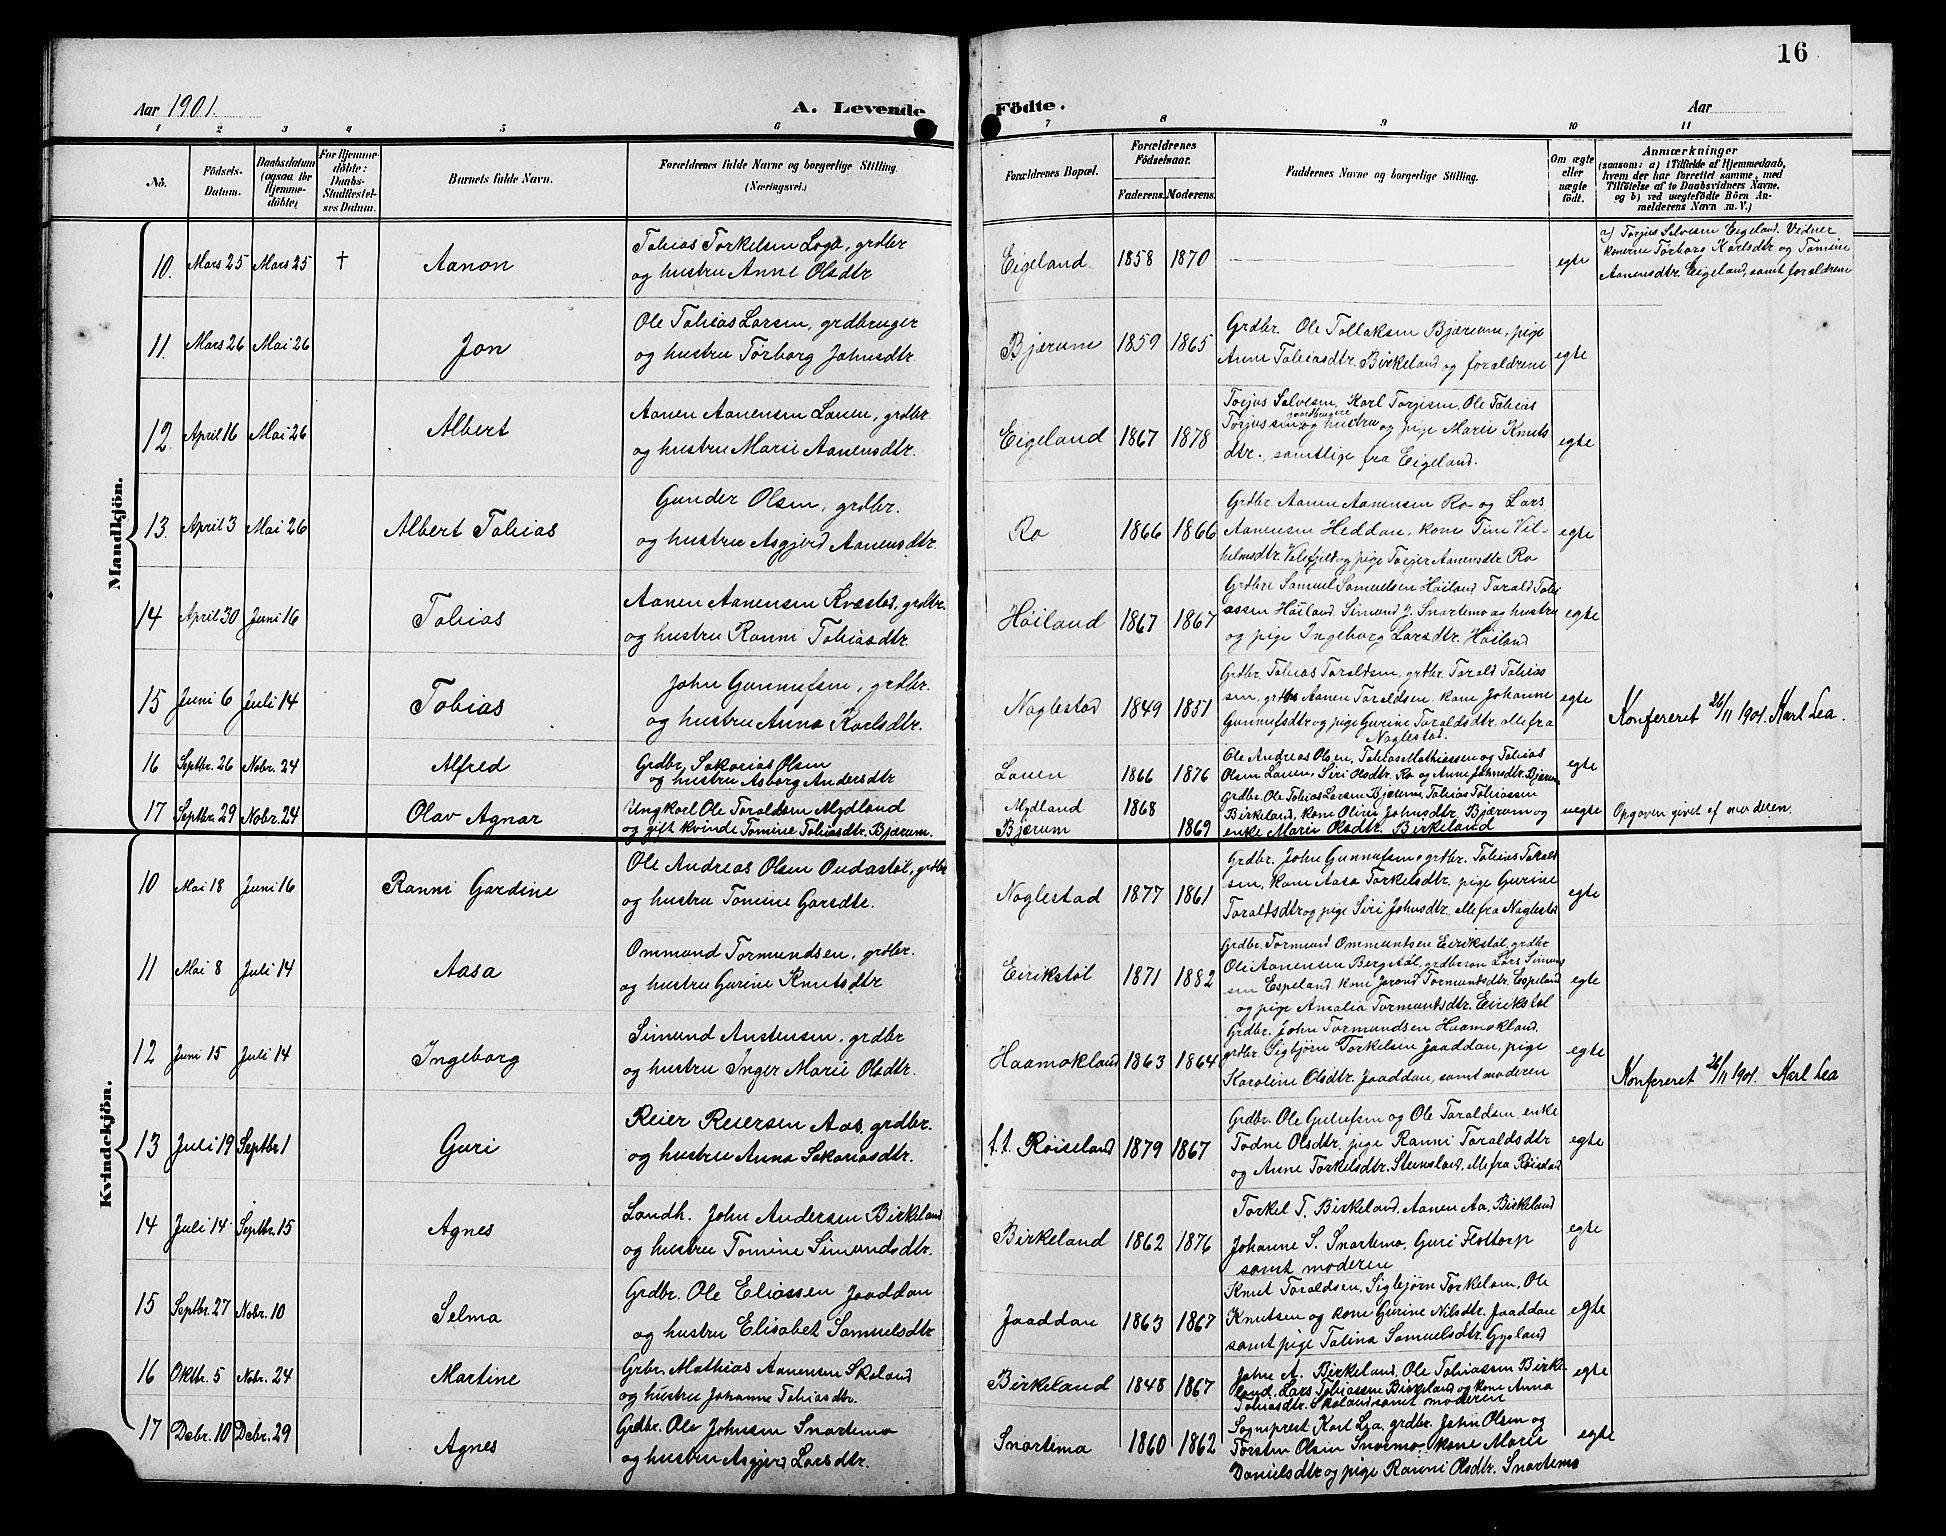 16
Aar 1901.
A. Levende Födte.
Aar
1 2 3 4 5 6 7 8 9 10 11
No.
Födsels-Datum.
Daabsdatum (ogsaa for Hjemme-döbte)
For Hjemme-döbte: Daabs-Stadfæstel-ses Datum.
Barnets fulde Navn.
Forældrenes fulde Navne og borgerlige Stilling
(Næringsvei.)
Forældrenes Bopæl.
Forældrenes Födselsaar.
Faderens. Moderens.
Faddernes Navne og borgerlige Stilling.
Om ægte eller uægte født.
Anmærkninger
(saasom: a) i Tilfælde af Hjemmedaab, hvem der har forrettet samme, med Tilföielse af to Daabsvidners Navne, og b) ved uægtefödte Börn An-melderens Navn m. V.)
Mandkjön.
10. Mars 25 Mars 25 † Aanon
Tobias Torkelsen Loga, grdbr
og hustru Anne Olsdtr
Eigeland 1858 1870 egte
a) Torjus Salvesen Eigeland. Vidner
konerne Torborg Karlsdtr og Tomine
Aanensdtr. Eigeland, samt forældrene
11. Mars 26 Mai 26 Jon
Ole Tobias Larsen, grdbruger
og hustru Torborg Johnsdtr
Bjærum 1859 1865
Grdbr. Ole Tollaksen Bjærum, pige
Anne Tobiasdtr. Birkeland og forældrene egte
12. April 16 Mai 26 Albert
Aanen Aanensen Lauen, grdbr.
og hustru Marie Aanensdtr.
Eigeland 1867 1878
Torjus Salvesen, Karl Torjisen, Ole Tobias
Torjussen gaardbrugere og hustru og pige Marie Knuts
dtr., samtlige fra Eigeland. egte
13. April 3 Mai 26 Albert Tobias
Gunder Olsen, grdbr.
og hustru Asgjerd Aanensdtr.
Ro 1866 1866
Grdbr Aanen Aanensen Ro og Lars
Aanensen Heddan, kone Tine Vil-
helmsdtr. og pige Aanensdtr Ro egte
14 April 30 Juni 16 Tobias
Aanen Aanensen Kvæstad, grdbr.
og hustru Ranni Tobiasdtr.
Høiland 1867 1867
Grdbre Samuel Samuelsen Høiland Tarald Tobi
assen Høiland, Simund J. Snartemo og hustru
og pige Ingeborg Larsdtr. Høiland egte
15 Juni 6 Juli 14 Tobias
John Gunnufsen, grdbr.
og hustru Anna Karlsdtr.
Naglestad 1849 1851
Grdbr. Tobias Taraldsen, grdbr. Tarald Tobias
sen, grdbr Aanen Taraldsen, kone Johanne
Gunnufsdtr og pige Gurine Taraldsdtr. alle fra
Naglestad. egte
Konfereret 26/11 1901. Karl Lea.
16 Septbr. 26 Nobr. 24 Alfred
Grdbr. Sakarias Olsen
og hustru Asborg Andersdtr
Lauen 1866 1876
Ole Andreas Olsen, Tobias Mathiassen og Tobias
Olsen Lauen, Siri Olsdtr. Ro og Anne Johnsdtr. Bjærum egte
17 Septbr. 29 Nobr. 24 Olav Agnar
Ungkarl Ole Taraldsen Mydland
og gift kvinde Tomine Tobiasdtr. Bjærum.
Mydland 1868
Bjærum 1869
Grdbr. Ole Tobias Larsen Bjærum, Tobias Tobiassen
Birkeland, kone Olivie Johnsdtr. Bjærum og
enke Marie Olsdtr. Birkeland uegte
Opgaven givet af moderen.
Kvindekjön.
10 Mai 18 Juni 16 Ranni Gardine
Ole Andreas Olsen Ondastøl, grdbr
og hustru Tomine Garsdtr.
Naglestad 1877 1861
Grdbr. John Gunnufsen, grdbr. Tobias Tarald
sen, kone Aasa Torkelsdtr. pige Gurine
Taraldsdtr og pige Siri Johnsdtr, alle fra Naglestad egte
11 Mai 8 Juli 14 Aasa
Ommund Tormundsen, grdbr.
og hustru Gurine Knutsdtr
Eirikstøl 1871 1882
Grdbr. Tormund Ommundsen Eirikstøl, grdbr
Ole Aanensen Bergstøl, grdbrsøn Lars Simund
sen Espeland, kone Jorand Tormundsdtr. Espeland
og pige Amalia Tormundsdtr. Eirikstøl egte
12 Juni 15 Juli 14 Ingeborg
Simund Austensen, grdbr
og hustru Inger Marie Olsdtr.
Haamokland 1863 1864
Grdbr. John Tormundsen Haamokland,
grdbr. Sigbjørn Torkelsen Jaaddan, pige
Karoline Olsdtr. Jaaddan, samt moderen egte
Konfereret 26/11 1901. Karl Lea
13 Juli 19 Septbr 1 Guri
Reier Reiersen Aas, grdbr.
og hustru Anna Sakariasdtr.
f.t. Røiseland 1879 1867
Grdbr. Ole Gunufsen og Ole Taraldsen, enke
Todne Olsdtr, pige Ranni Taraldsdtr
og Anne Torkelsdtr. Steensland, alle fra Røiseland egte
14 Juli 14 Septbr. 15 Agnes
Landh. John Andersen Birkeland
og hustru Tomine Simundsdtr.
Birkeland 1862 1876
Torkel T. Birkeland, Aanen Aa. Birkeland
Johanne S. Snartemo, Guri Flottorp
samt moderen egte
15 Septbr. 27 Nobr. 10 Selma
Grdbr. Ole Eliassen Jaaddan
og hustru Elisabet Samuelsdtr
Jaaddan 1863 1867
Knut Taraldsen, Sigbjørn Torkelsen, Ole
Knutsen og kone Gurine Nilsdtr. Jaaddan
samt pige Talina Samuelsdtr. Gysland egte
16 Oktbr. 5 Nobr. 24 Martine
Grbr. Mathias Aanensen Skoland
og hustru Johanne Tobiasdtr.
Birkeland 1848 1867
John A. Birkeland, Ole Tobiassen Birke-
land, Lars Tobiassen Birkeland og kone Anna
Tobiasdtr. Skoland samt moderen egte
17 Debr. 10 Debr. 29 Agnes
Grdbr. Ole Johnsen Snartemo
og hustru Asgjerd Larsdtr.
Snartemo 1860 1862
Sogneprest Karl Lea, grdbr. John Olsen og
Torsten Olsen Snartmo, kone Marie
Danielsdtr og pige Ranni Olsdtr. Snartemo egte